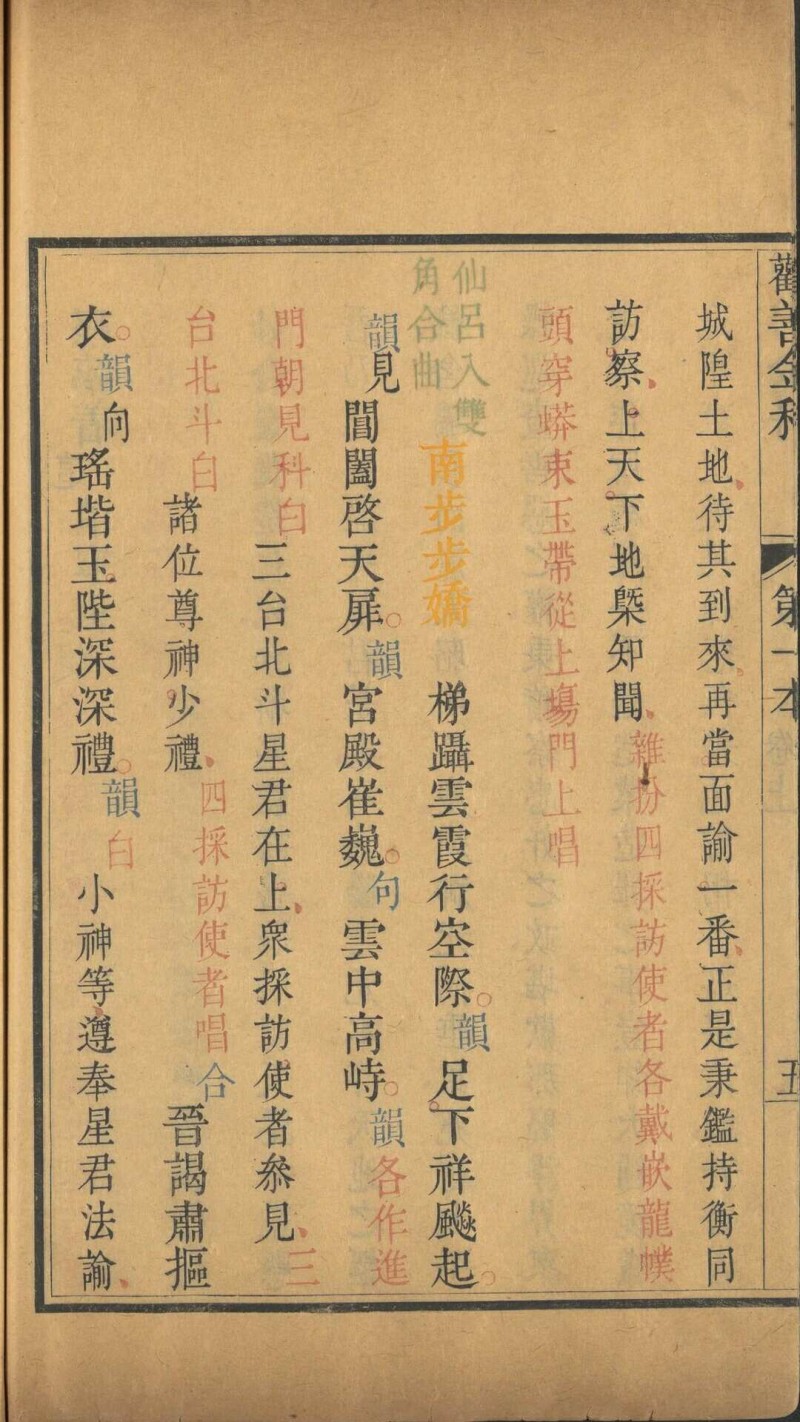 勸善金科
第一本
卷上
五
城隍土地待其到來再當面諭一番正是秉鑑持衡同
訪察上天下地槩知聞雜扮四採訪使者各戴嵌龍幞
頭穿蟒束玉帶從上場門上唱
仙呂入雙
角合曲
南步步嬌
梯躡雲霞行空際韻足下祥飈起
韻見閶闔啓天扉韻宮殿崔巍句雲中高峙韻各作進
門朝見科白三台北斗星君在上衆採訪使者叅見三
台北斗白諸位尊神少禮四採訪使者唱合晉謁肅摳
衣韻向瑤堦玉陛深深禮韻白小神等遵奉星君法諭